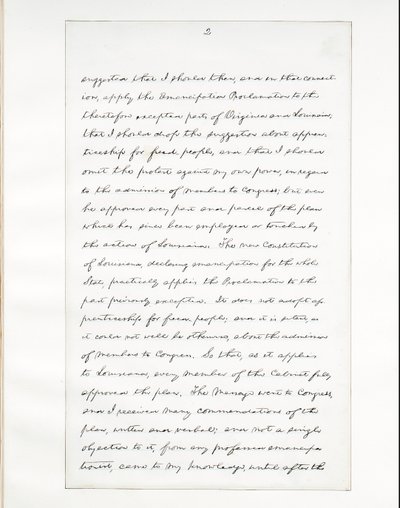 2
suggested that I should then, and in that connect-
ion, apply the Emancipation Proclamation to the
theretofore excepted parts of Virginia and Louisiana;
that I should drop the suggestion about appren-
ticeship for freed-people, and that I should
omit the protest against my own power, in regard
to the admission of members to Congress; but even
he approved every part and parcel of the plan
which has since been employed or touched by
the action of Louisiana. The new Constitution
of Louisiana, declaring emancipation for the whole
State, practically applies the Proclamation to the
part previously excepted. It does not adopt ap-
prenticeship for freed-people; and it is silent, as
it could not well be otherwise, about the admission
of members to Congress. So that, as it applies
to Louisiana, every member of the Cabinet fully
approved the plan. The Message went to Congress,
and I received many commendations of the
plan, written and verbal; and not a single
objection to it, from any professed emancipa-
tionist, came to my knowledge, until after the